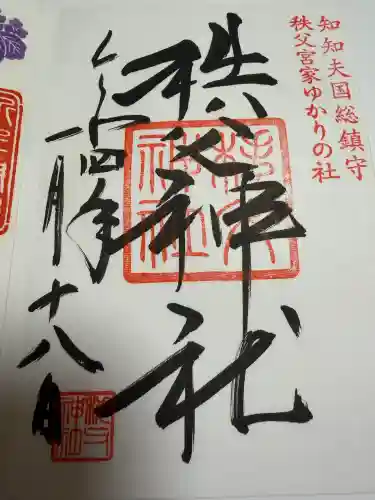 知知夫国総鎮守
秩父宮家ゆかりの社
秩父神社
令和四年
一月十八日
秩父
神社